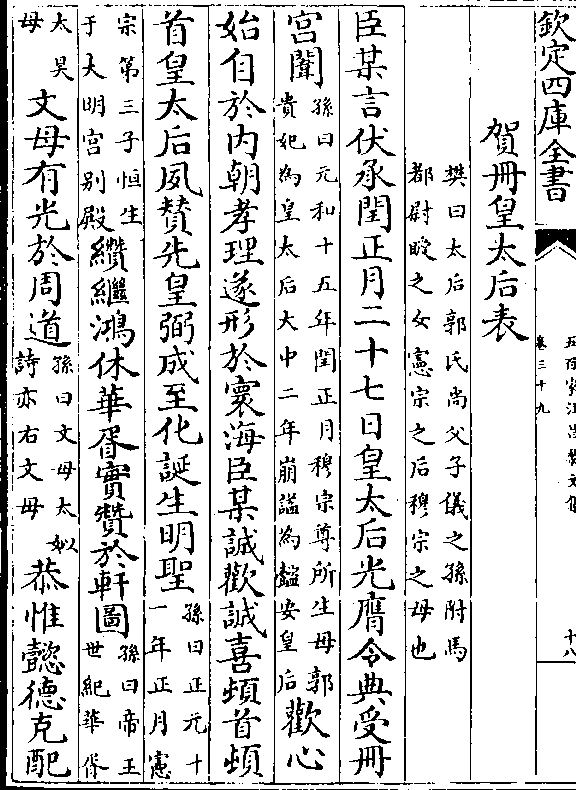 欽定四庫全書
卷三十九
十八
賀冊皇太后表
樊曰太后郭氏尚父子儀之孫附馬
都尉曖之女憲宗之后穆宗之母也
臣某言伏承閏正月二十七日皇太后光膺令典受冊
宫闈孫曰元和十五年閏正月穆宗尊所生母郭
貴妃為皇太后大中二年崩諡為懿安皇后歡心
始自於内朝孝理遂形於寰海臣某誠歡誠喜頓首頓
首皇太后夙贊先皇弼成至化誕生明聖孫曰正元十
一年正月憲
宗第三子恒生
于大明宫别殿纘繼鴻休華胥實贊於軒圖孫曰帝王
世紀華胥
太昊
母文母有光於周道孫曰文母太姒
詩亦右文母恭惟懿德克配